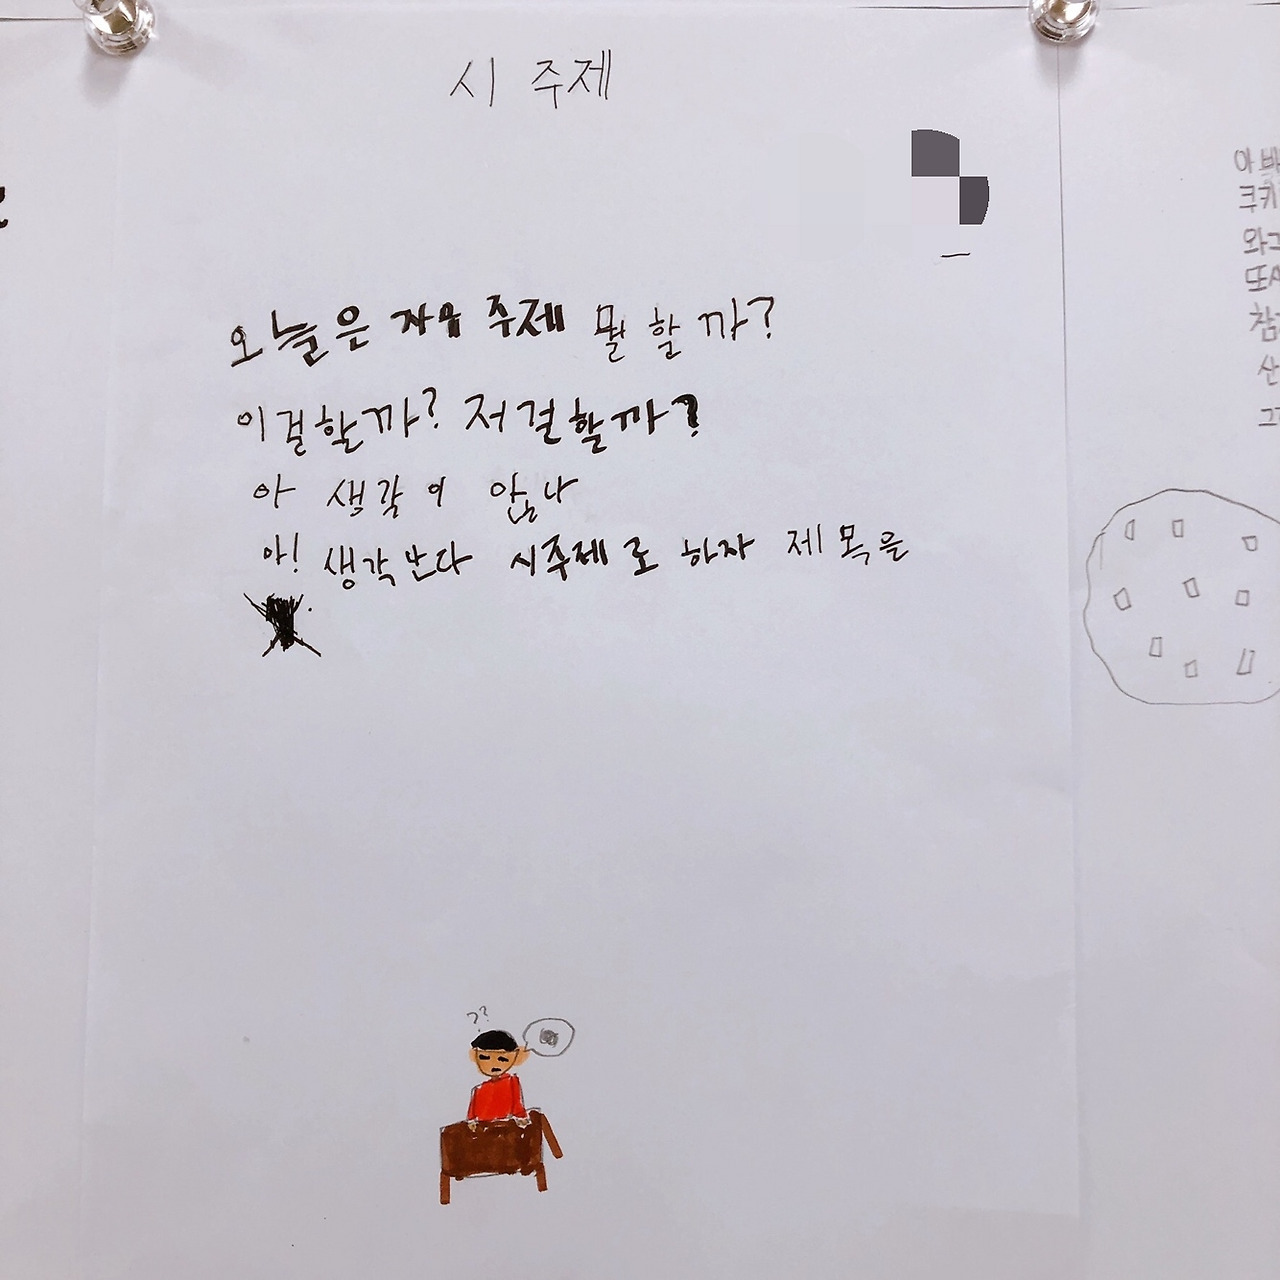 시 주제
오늘은 자유 주제 뭘 할 까?
이걸할까? 저걸할까?
아 생각이 않나
아! 생각난다 시주제로 하자 제목을
??
아빠
쿠키
와그
또사
참
산
그